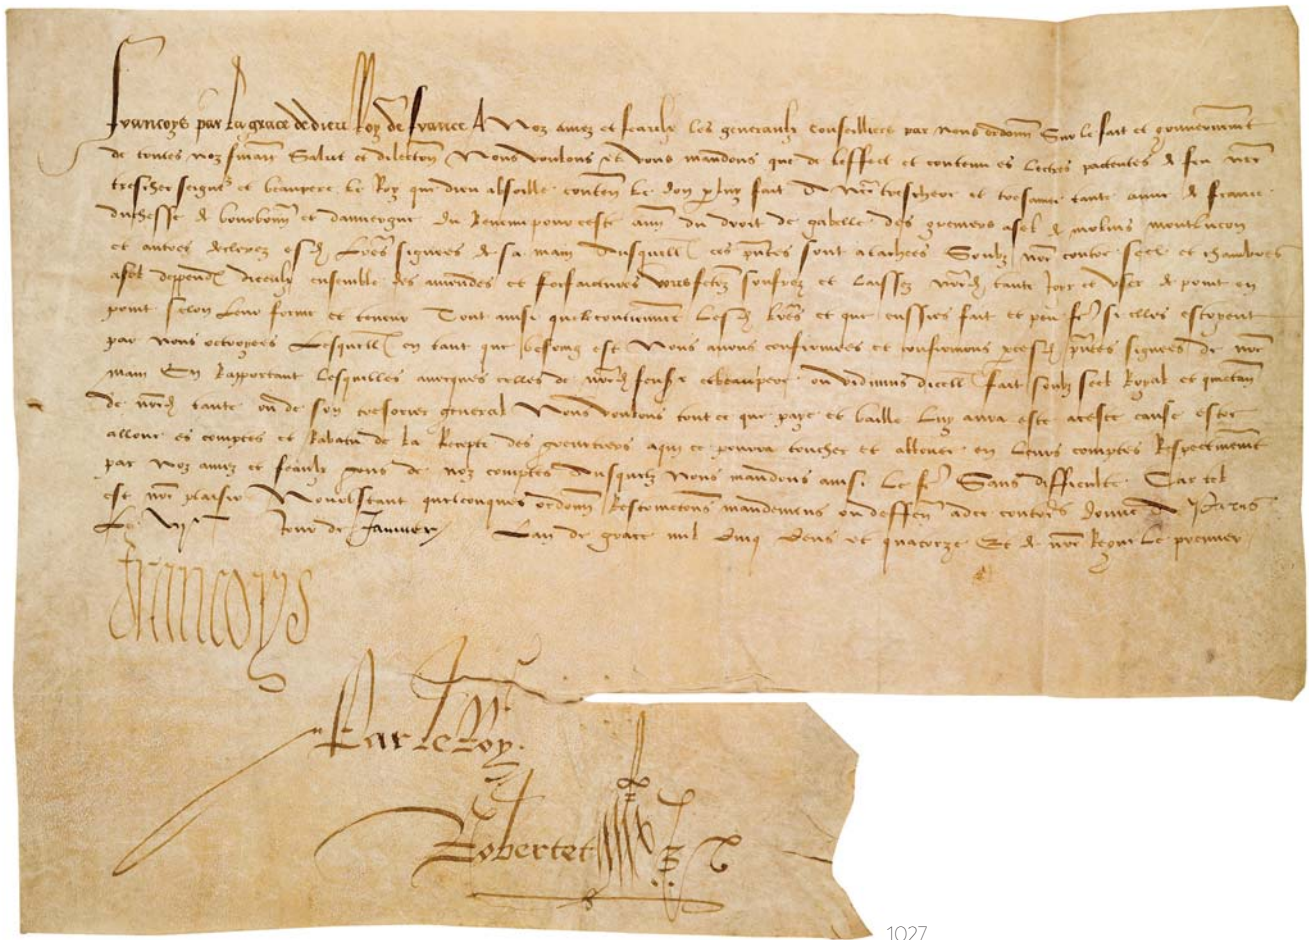 Francoys par la grace de dieu Roy de France A Noz amez et feaulx les generaulx conseilliers par nous ordonn Sur le fait et gouvernement
de toutes noz finan Salut et dilection Nous voulons et vous mandons que de leffect et contenu es lectres pactentes de feu nre
treschier seigneur et beaupere le Roy que dieu absoille conten le don par luy fait a nre treschere et tresamee tante anne de france
duchesse de bourbonn et dauvergne du Revenu pour ceste ann du droit de gabelle des greniers a sel de molins montlucon
et autres declerez esd lres signees de sa main Ausquell ces pntes sont atachees Soubz nre contre seel et chambres
a sel deppend diceulx ensemble des amendes et forfaictures vous fetez souffrez et laissez nred tante Joyr et user de point en
point selon leur forme et teneur Tout ainsi quelz contiennent lesd lres et que eussies fait et peu fre si elles estoyent
par nous octroyees Lesquell en tant que besoing est Nous avons confirmees et confirmons par cesd pntes signees de nre
main En Rapportant lesquelles avecques celles de nred feu sr et beaupere ou vidimus dicell fait soubz seel Royal et quictan
de nred tante ou de son tresorier general Nous voulons tout ce que paye et baille luy aura este a ceste cause estre
alloue es comptes et Rabatu de la Recepte des grenetiers a qui ce pourra toucher et allouer en leurs comptes Respectivement
par noz amez et feaulx gens de noz comptes Ausquelz nous mandons ainsi le fre Sans difficulte Car tel
est nre plaisir Nonobstant quelconques ordonn Restrinctions mandemens ou deffen a ce contres donne a Paris
Le jour de Janvier Lan de grace mil cinq cens et quatorze Et de nre Regne le premier
Francoys
Par le Roy
Robertet
1027